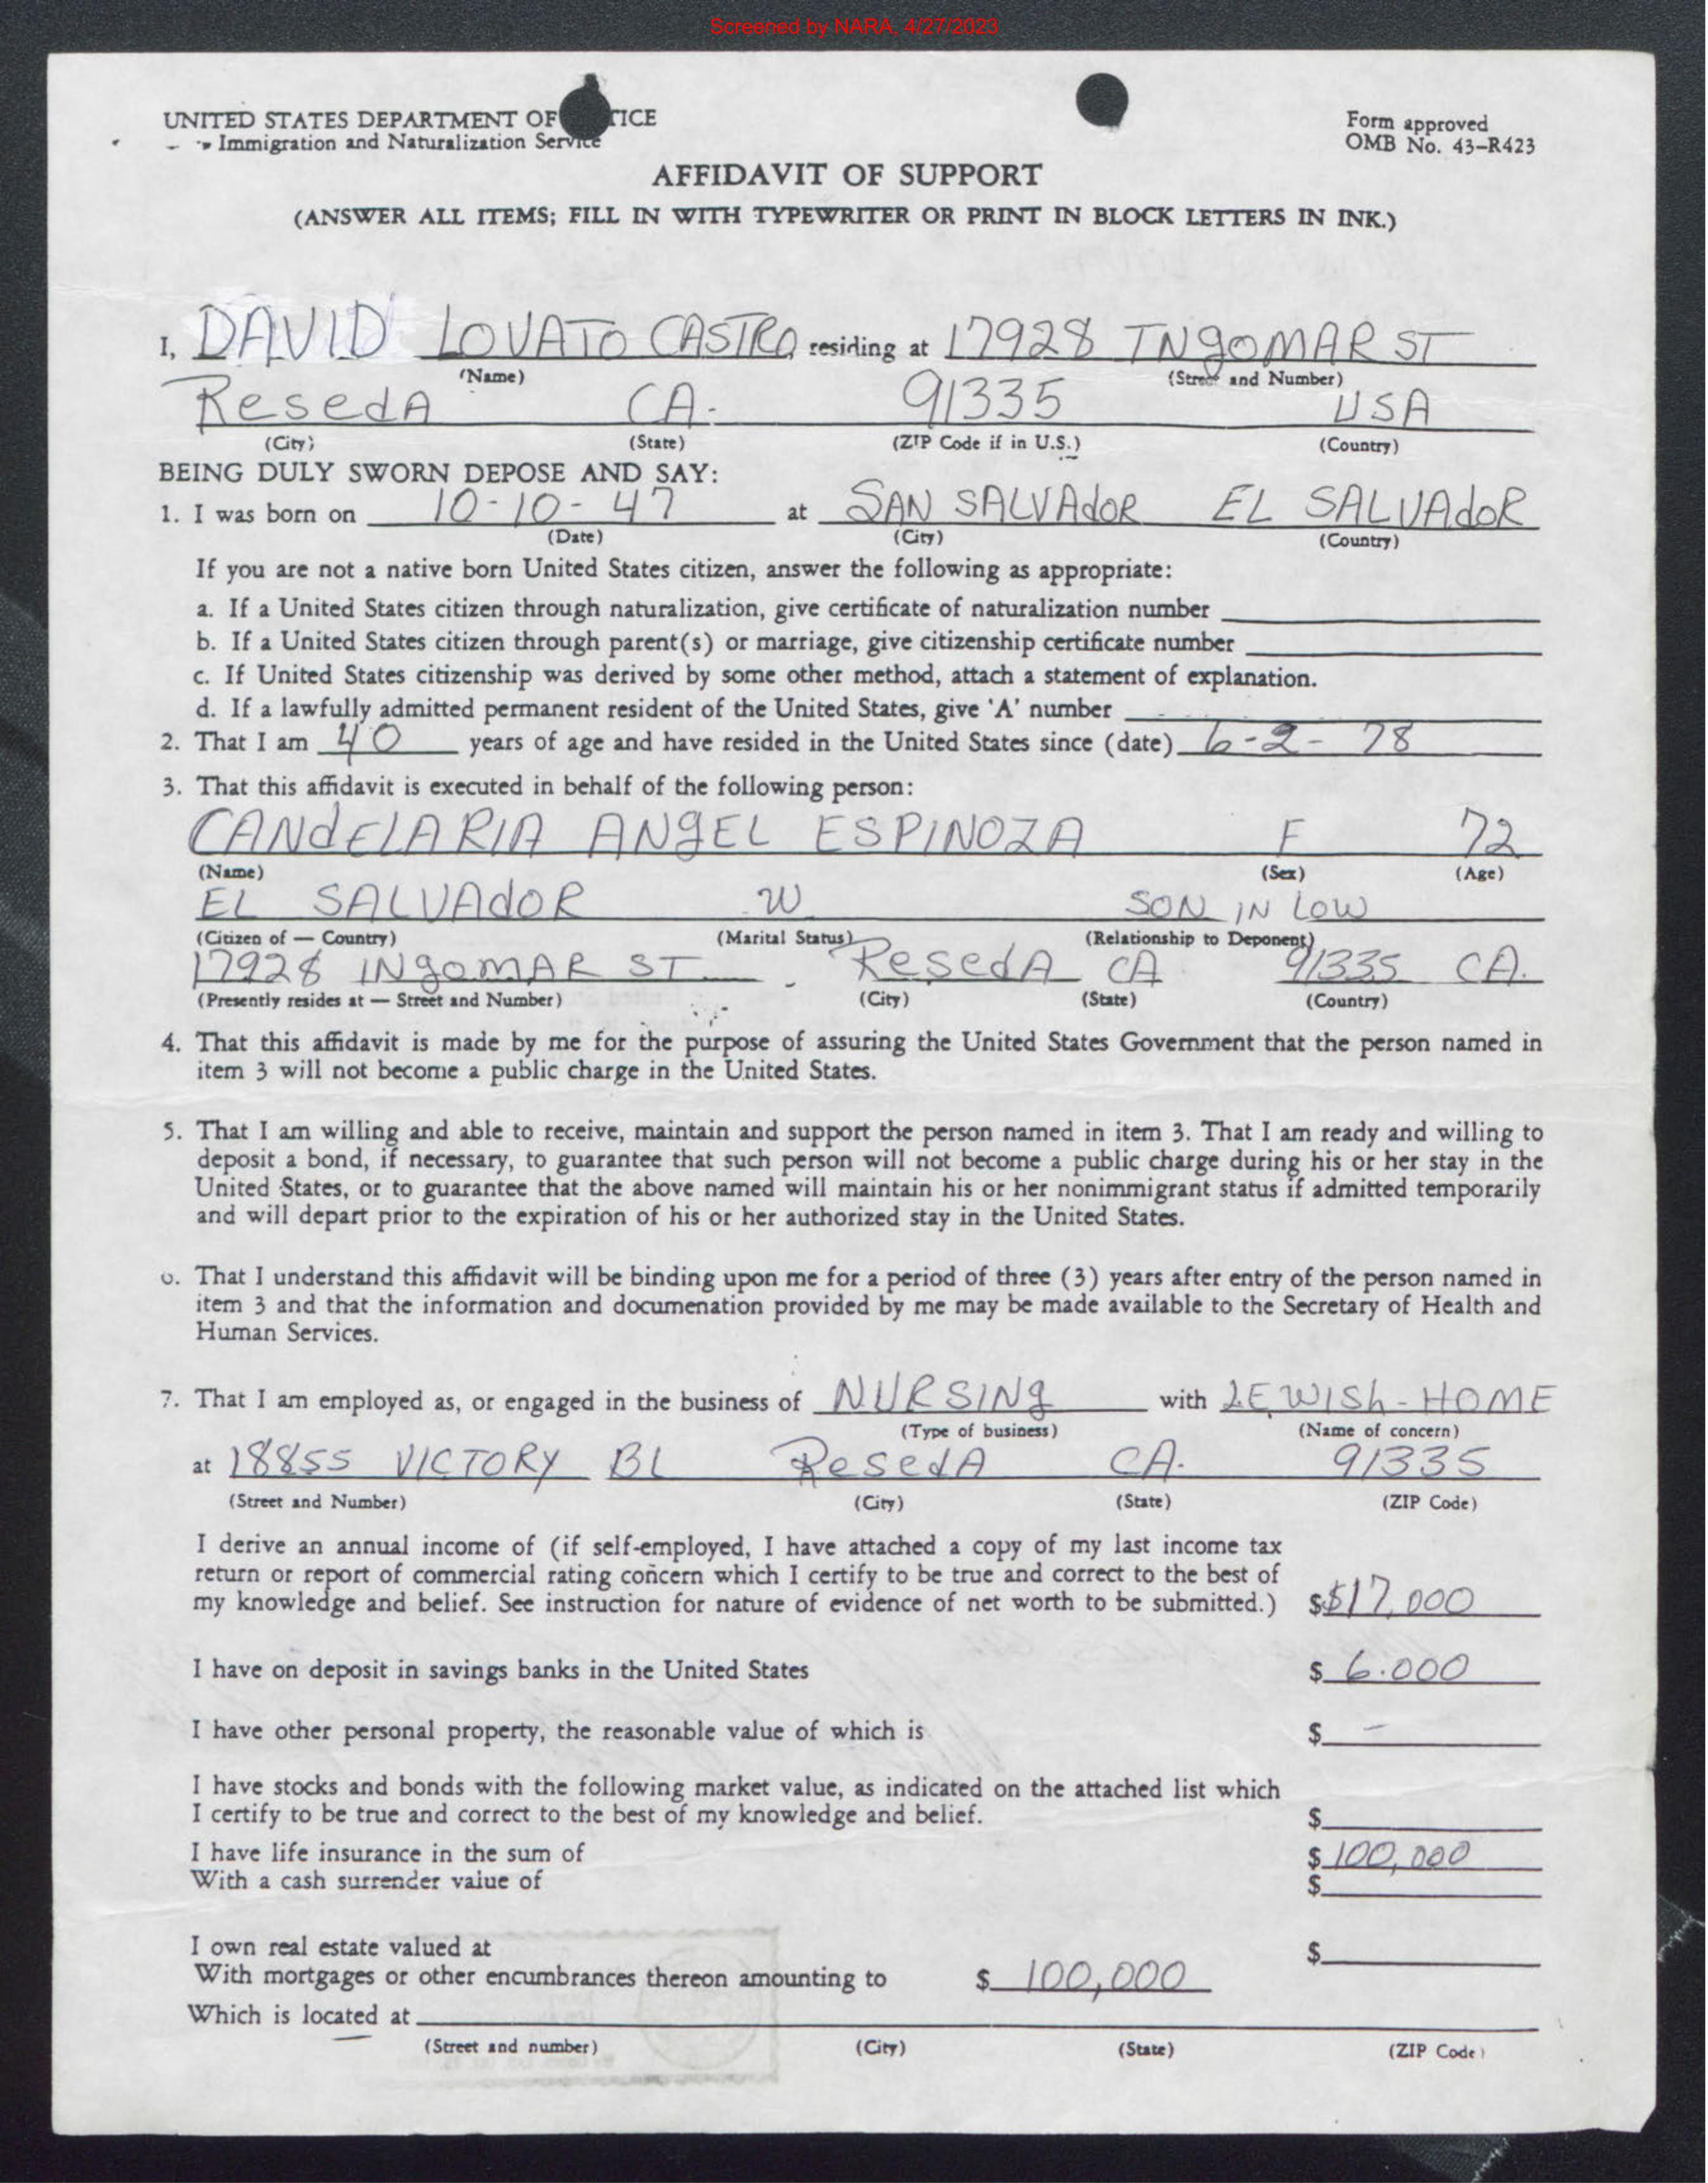 Screened by NARA, 4/27/2023
UNITED STATES DEPARTMENT OF TICE
Immigration and Naturalization Service
Form approved
OMB No. 43-R423
AFFIDAVIT OF SUPPORT
(ANSWER ALL ITEMS; FILL IN WITH TYPEWRITER OR PRINT IN BLOCK LETTERS IN INK.)
I, DAVID LOVATO CASTRO residing at 17928 INgOMAR ST
(Name) (Street and Number)
ResedA CA. 91335 USA
(City) (State) (ZIP Code if in U.S.) (Country)
BEING DULY SWORN DEPOSE AND SAY:
1. I was born on 10-10-47 at SAN SALVAdOR EL SALVAdOR
(Date) (City) (Country)
If you are not a native born United States citizen, answer the following as appropriate:
a. If a United States citizen through naturalization, give certificate of naturalization number
b. If a United States citizen through parent(s) or marriage, give citizenship certificate number
c. If United States citizenship was derived by some other method, attach a statement of explanation.
d. If a lawfully admitted permanent resident of the United States, give 'A' number
2. That I am 40 years of age and have resided in the United States since (date) 6-2-78
3. That this affidavit is executed in behalf of the following person:
CANdELARIA ANgEL ESPINOZA F 72
(Name) (Sex) (Age)
EL SALVAdOR W SON IN LOW
(Citizen of — Country) (Marital Status) (Relationship to Deponent)
17928 INgOMAR ST ResedA CA 91335 CA.
(Presently resides at — Street and Number) (City) (State) (Country)
4. That this affidavit is made by me for the purpose of assuring the United States Government that the person named in
item 3 will not become a public charge in the United States.
5. That I am willing and able to receive, maintain and support the person named in item 3. That I am ready and willing to
deposit a bond, if necessary, to guarantee that such person will not become a public charge during his or her stay in the
United States, or to guarantee that the above named will maintain his or her nonimmigrant status if admitted temporarily
and will depart prior to the expiration of his or her authorized stay in the United States.
6. That I understand this affidavit will be binding upon me for a period of three (3) years after entry of the person named in
item 3 and that the information and documenation provided by me may be made available to the Secretary of Health and
Human Services.
7. That I am employed as, or engaged in the business of NURSINg with LEWISh-HOME
(Type of business) (Name of concern)
at 18855 VICTORY BL ResedA CA. 91335
(Street and Number) (City) (State) (ZIP Code)
I derive an annual income of (if self-employed, I have attached a copy of my last income tax
return or report of commercial rating concern which I certify to be true and correct to the best of
my knowledge and belief. See instruction for nature of evidence of net worth to be submitted.) $$17,000
I have on deposit in savings banks in the United States $ 6.000
I have other personal property, the reasonable value of which is $ —
I have stocks and bonds with the following market value, as indicated on the attached list which
I certify to be true and correct to the best of my knowledge and belief. $
I have life insurance in the sum of $ 100,000
With a cash surrender value of $
I own real estate valued at $
With mortgages or other encumbrances thereon amounting to $ 100,000
Which is located at
(Street and number) (City) (State) (ZIP Code)